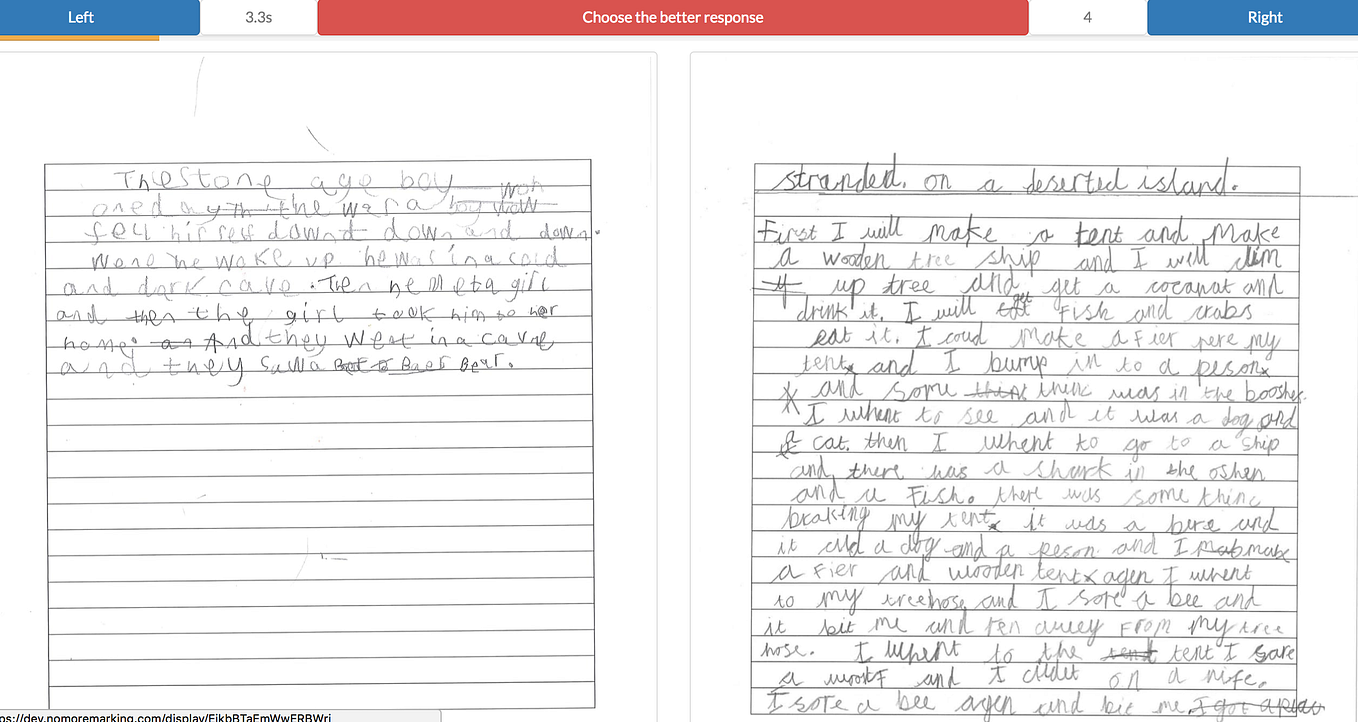 Left
3.3s
Choose the better response
4
Right
The Stone age boy woh
oned ay Th the wer a boy wow
fell his self downd down and down.
Wene he woke up he was in a cold
and dark cave. Then he met a girl
and then the girl took him to her
home. an And they went in a cave
and they sawa Bot to Baer Bear.
stranded. on a deserted island.
First I will make a tent and make
a wooden tree ship and I will clim
up tree and get a cocanat and
drink it. I will get fish and crabs
eat it. I coud make a fier nere my
tent and I bump in to a peson
and some think thinc was in the booshes.
I whent to see and it was a dog and
a cat. then I whent to go to a ship
and there was a shark in the oshen
and a Fish. there was some thinc
braking my tent it was a bere and
it a dog and a peson and I mab make
a fier and wooden tent agen I whent
to my treehose and I sore a bee and
it bit me and ren awey From my tree
hose. I whent to the tent tent I sare
a woolf and I on a nife.
I sore a bee agen and bit me. I got
ps://dev.nomoremarking.com/display/FikbBTaEmWwERBWri